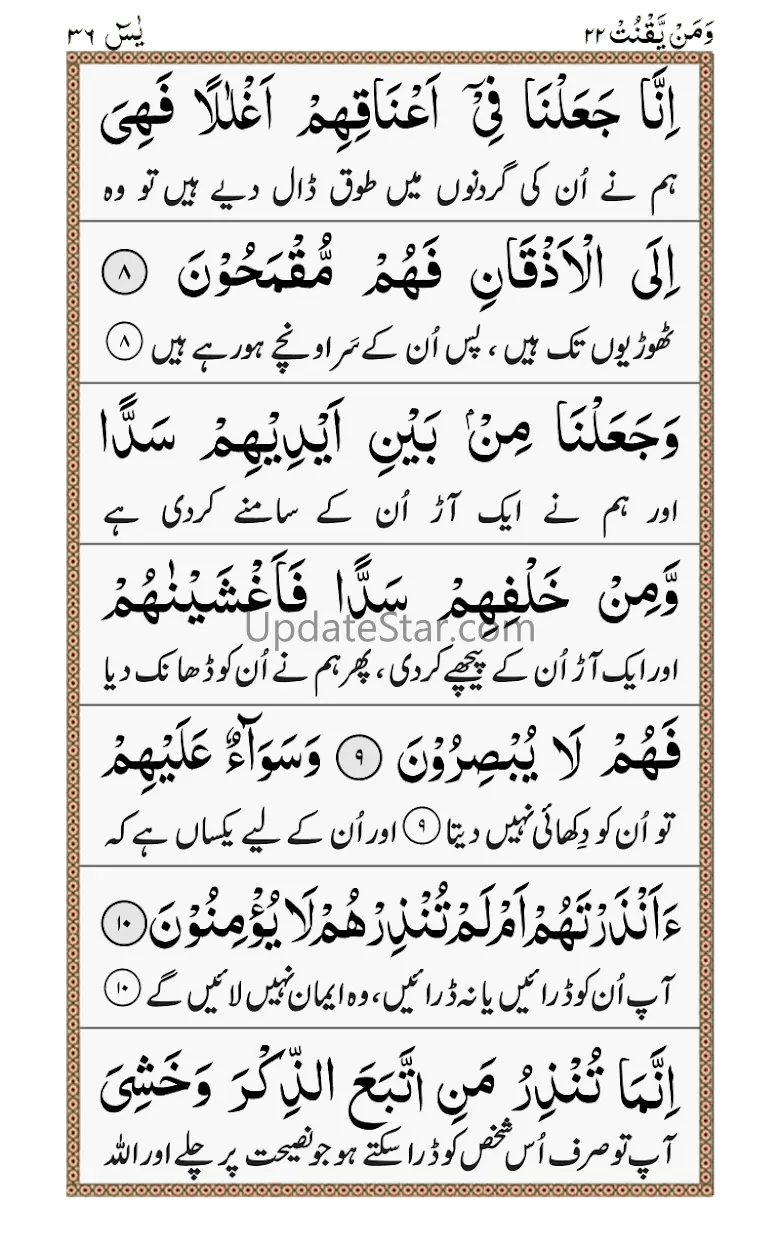 وَمَنۡ یَّقۡنُتۡ ۲۲
یٰسٓ ۳۶
اِنَّا جَعَلۡنَا فِیۡۤ اَعۡنَاقِهِمۡ اَغۡلٰلًا فَهِیَ
ہم نے اُن کی گردنوں میں طوق ڈال دیے ہیں تو وہ
اِلَی الۡاَذۡقَانِ فَهُمۡ مُّقۡمَحُوۡنَ ۸
ٹھوڑیوں تک ہیں، پس اُن کے سَر اونچے ہورہے ہیں ۸
وَجَعَلۡنَا مِنۡۢ بَیۡنِ اَیۡدِیۡهِمۡ سَدًّا
اور ہم نے ایک آڑ اُن کے سامنے کردی ہے
وَّمِنۡ خَلۡفِهِمۡ سَدًّا فَاَغۡشَیۡنٰهُمۡ
UpdateStar.com
اور ایک آڑ اُن کے پیچھے کردی، پھر ہم نے اُن کو ڈھانک دیا
فَهُمۡ لَا یُبۡصِرُوۡنَ ۹ وَسَوَآءٌ عَلَیۡهِمۡ
تو اُن کو دِکھائی نہیں دیتا ۹ اور اُن کے لیے یکساں ہے کہ
ءَاَنۡذَرۡتَهُمۡ اَمۡ لَمۡ تُنۡذِرۡهُمۡ لَا یُؤۡمِنُوۡنَ ۱۰
آپ اُن کو ڈرائیں یا نہ ڈرائیں، وہ ایمان نہیں لائیں گے ۱۰
اِنَّمَا تُنۡذِرُ مَنِ اتَّبَعَ الذِّكۡرَ وَخَشِیَ
آپ تو صرف اُس شخص کو ڈرا سکتے ہو جو نصیحت پر چلے اور اللہ